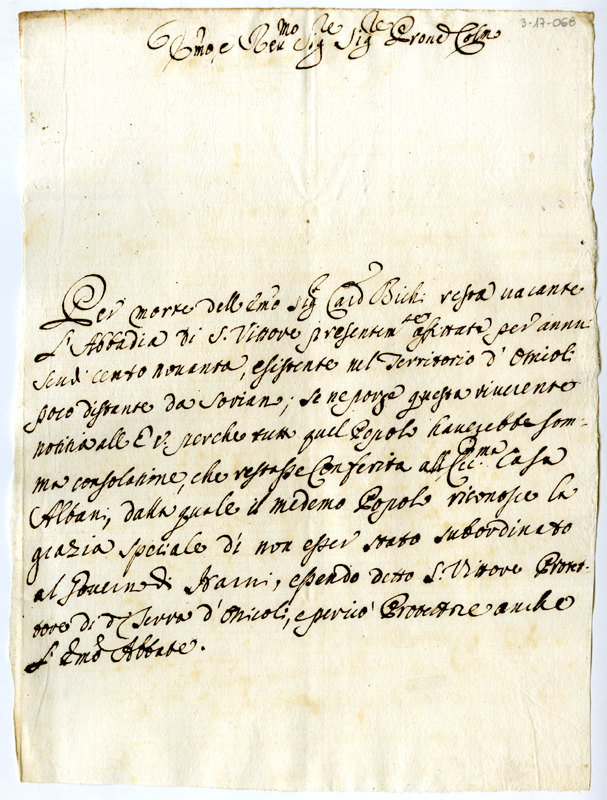 3-17-068
Emo, e Reumo Sig.re Sig.re Prone Colmo
Per morte dell'Emo Sig. Card Bichi resta uacante
l'Abbadia di S. Vittore presentemte affittata per annui
scudi cento nouanta, esistente nel Territorio d'Otricoli
poco distante da Sorian; se ne porge questa riuerente
notitia all'E. V. perche tutto quel Popolo hauerebbe som-
ma consolatione, che restasse Conferita all'Eccma Casa
Albani, dalla quale il medemo Popolo riconosce la
grazia speciale di non esser stato subordinato
al Gouerno di Narni, essendo detto S. Vittore Protet-
tore di da Terra d'Otricoli, e perciò Protettore anche
l'Emo Abbate.